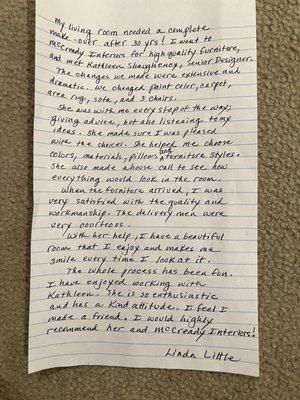 My living room needed a complete
make-over after 30 yrs! I went to
McCready Interiors for high quality furniture,
and met Kathleen Shaughency, Senior Designer.
The changes we made were extensive and
dramatic. We changed paint color, carpet,
area rug, sofa, and 3 chairs.
She was with me every step of the way;
giving advice, but also listening to my
ideas. She made sure I was pleased
with the choices. She helped me choose
colors, materials, pillows and furniture styles.
She also made a house call to see how
everything would look in the room.
When the furniture arrived, I was
very satisfied with the quality and
workmanship. The delivery men were
very courteous.
With her help, I have a beautiful
room that I enjoy and makes me
smile every time I look at it.
The whole process has been fun.
I have enjoyed working with
Kathleen. She is so enthusiastic
and has a kind attitude. I feel I
made a friend. I would highly
recommend her and McCready Interiors!
Linda Little